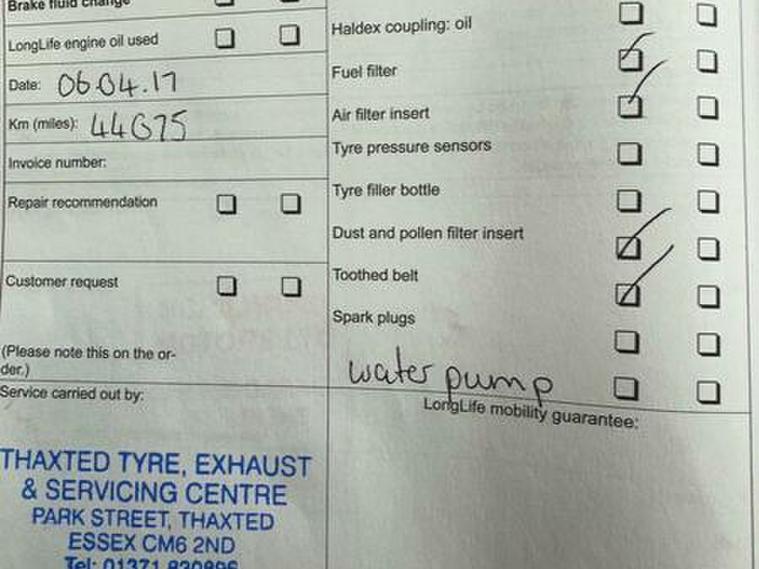 Brake fluid change
LongLife engine oil used
Date: 06.04.17
Km (miles): 44675
Invoice number:
Repair recommendation
Customer request
(Please note this on the or-
der.)
Service carried out by:
THAXTED TYRE, EXHAUST
& SERVICING CENTRE
PARK STREET, THAXTED
ESSEX CM6 2ND
Tel: 01371 830896
Haldex coupling: oil
Fuel filter
Air filter insert
Tyre pressure sensors
Tyre filler bottle
Dust and pollen filter insert
Toothed belt
Spark plugs
water pump
LongLife mobility guarantee: